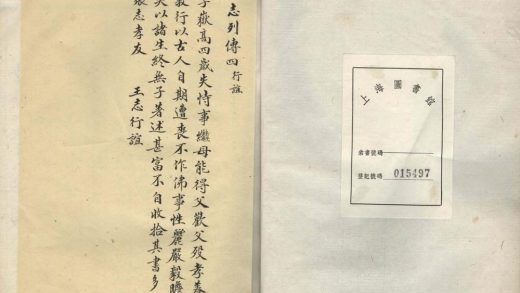 上海圖書館
索書號碼
登記號碼 015497
志列傳四 行誼
子嶽高四歲失恃事繼母能得父歡父歿孝養
行以古人自期遭喪不作佛事性嚴毅
失以諸生終無子著述甚富不自收拾其書多
志孝友 王志行誼